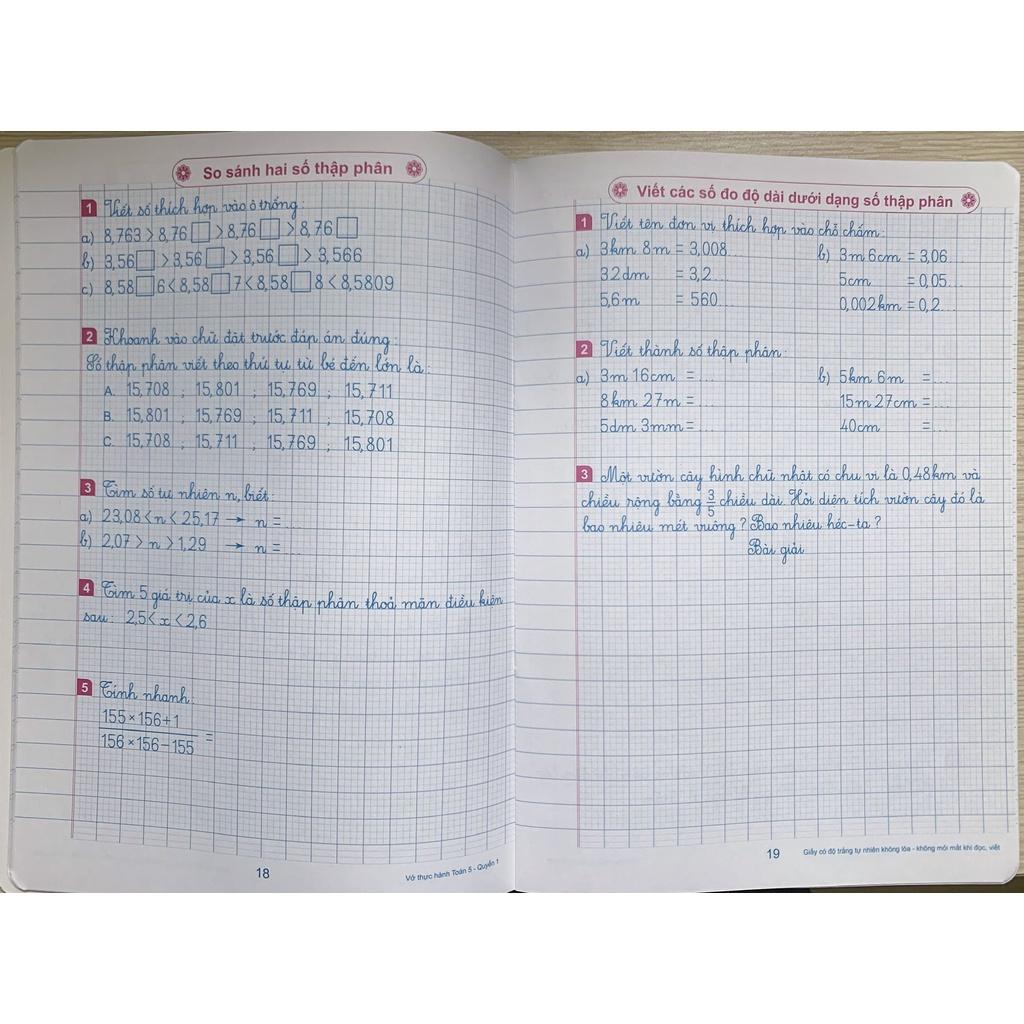 So sánh hai số thập phân
1 Viết số thích hợp vào ô trống:
a) 8,763 > 8,76□ > 8,76□ > 8,76□
b) 3,56□ > 3,56□ > 3,56□ > 3,566
c) 8,58□6 < 8,58□7 < 8,58□8 < 8,5809
2 Khoanh vào chữ đặt trước đáp án đúng:
Số thập phân viết theo thứ tự từ bé đến lớn là:
A. 15,708 ; 15,801 ; 15,769 ; 15,711
B. 15,801 ; 15,769 ; 15,711 ; 15,708
C. 15,708 ; 15,711 ; 15,769 ; 15,801
3 Tìm số tự nhiên n, biết:
a) 23,08 < n < 25,17 → n = ...
b) 2,07 > n > 1,29 → n = ...
4 Tìm 5 giá trị của x là số thập phân thoả mãn điều kiện
sau: 2,5 < x < 2,6
5 Tính nhanh:
155 × 156 + 1
156 × 156 − 155 =
18
Vở thực hành Toán 5 - Quyển 1
Viết các số đo độ dài dưới dạng số thập phân
1 Viết tên đơn vị thích hợp vào chỗ chấm:
a) 3km 8m = 3,008... b) 3m 6cm = 3,06...
32dm = 3,2... 5cm = 0,05...
5,6m = 560... 0,002km = 0,2...
2 Viết thành số thập phân:
a) 3m 16cm = ... b) 5km 6m = ...
8km 27m = ... 15m 27cm = ...
5dm 3mm = ... 40cm = ...
3 Một vườn cây hình chữ nhật có chu vi là 0,48km và
chiều rộng bằng 3/5 chiều dài. Hỏi diện tích vườn cây đó là
bao nhiêu mét vuông? Bao nhiêu héc-ta?
Bài giải
19
Giấy có độ trắng tự nhiên không lóa - không mỏi mắt khi đọc, viết